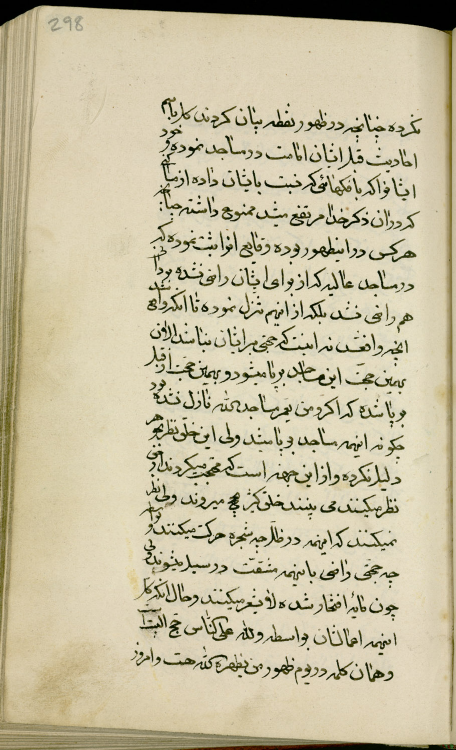 298
نکرده چنانچه در ظهور نقطه بیان کردند کل باسم
احادیث قبل ایشان امامت در مساجد نموده خود
که در ان ذکر خدا مرتفع میشد ممنوع داشته
هر کس در این ظهور بوده وقایع انرا ثبت نموده که
در مساجد عالیه که از برای ایشان راضی نشده بودند
هم راضی نشد بلکه از اینهم تنزل نموده تا انکه واقع
انچه واقع شد نه اینست که حقی در ایشان نباشد الان
بهمین حجت این مساجد برپا میشود و بهمین حجت از قبل
برپا شده که اگر من یعمر مساجد الله نازل نشده بود
چگونه اینهمه مساجد برپا میشد ولی این خلق نظر بجوهر
دلیل نکرده و از این جهت است که محتجب میگردند
نظر میکنند می بینند خلق کثیر حج میروند ولی نظر
نمیکنند که اینهمه در ظل چه شجره حرکت میکنند و
چه حجتی راضی باینهمه مشقت در سبیل میشوند ولی
چون مایه افتخار شده لا یشعر میکنند و حال انکه کل
اینهمه اعمالشان بواسطه ولله علی الناس حج البیت است
و همان کلمه در یوم ظهور من یظهره الله هست و امروز